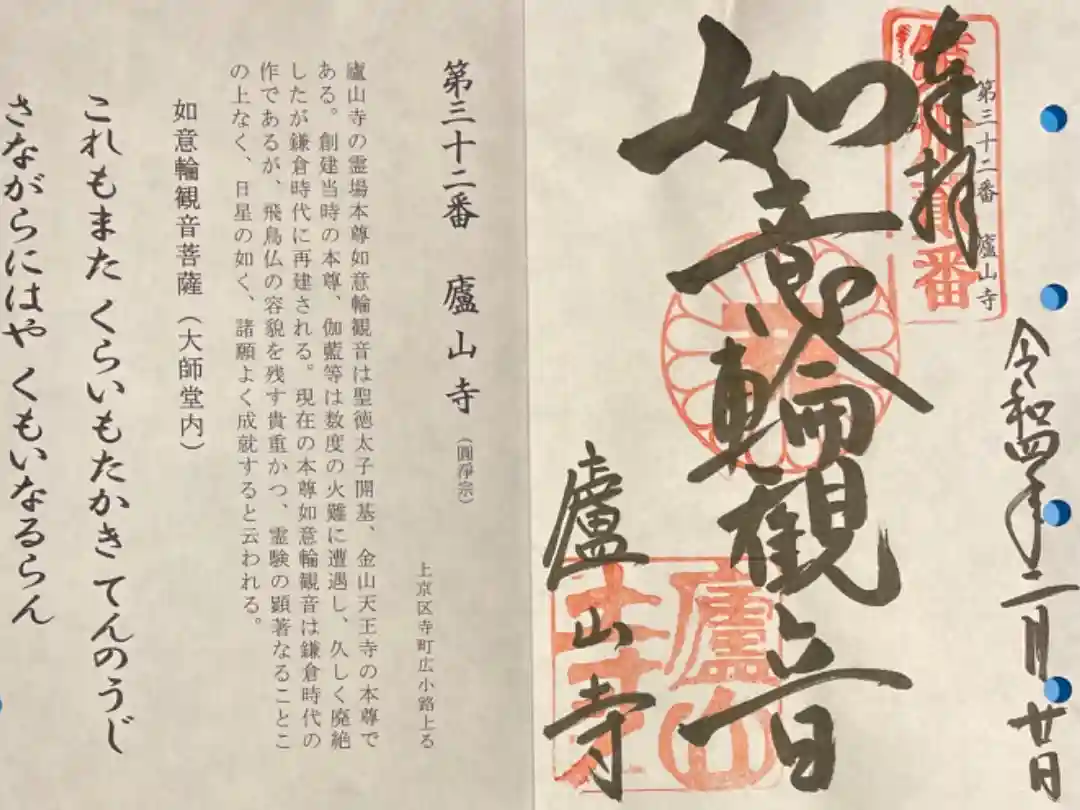 奉拝
第三十二番　廬山寺
令和四年二月廿日
如意輪観音
廬山寺
廬山
第三十二番　廬山寺（圓浄宗）
上京区寺町広小路上る
廬山寺の霊場本尊如意輪観音は聖徳太子開基、金山天王寺の本尊で
ある。創建当時の本尊、伽藍等は数度の火難に遭遇し、久しく廃絶
したが鎌倉時代に再建される。現在の本尊如意輪観音は鎌倉時代の
作であるが、飛鳥仏の容貌を残す貴重かつ、霊験の顕著なることこ
の上なく、日星の如く、諸願よく成就すると云われる。
如意輪観音菩薩（大師堂内）
これもまた くらいもたかき てんのうじ
さながらにはや くもいなるらん